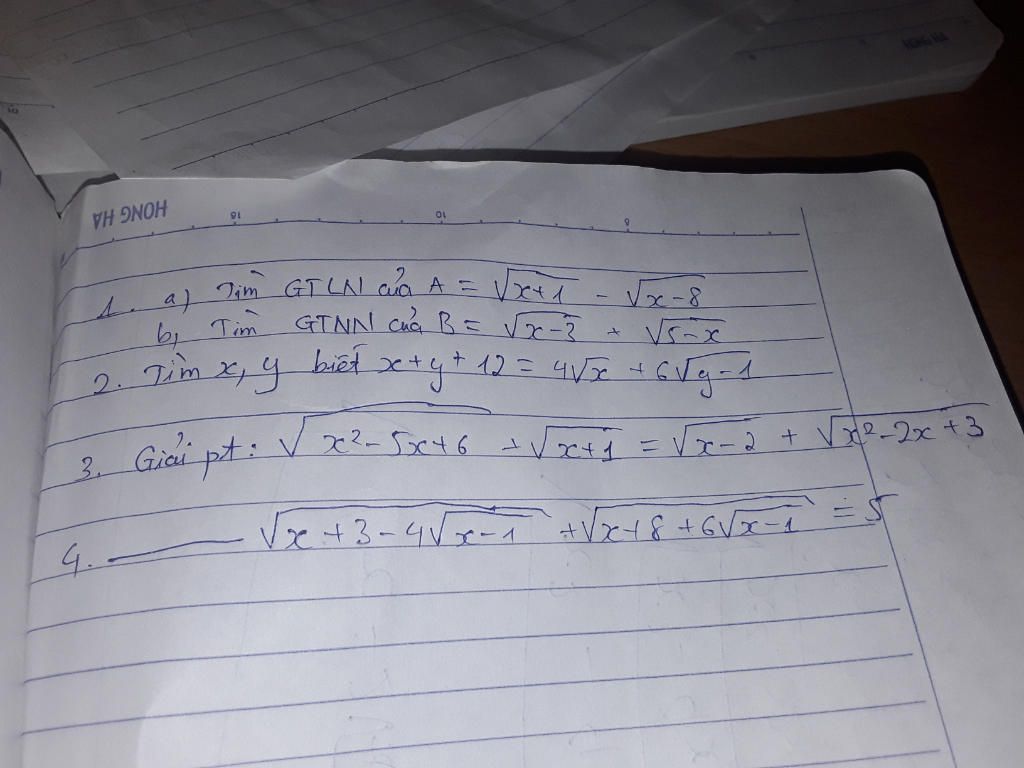 HONG HA
HONG HA 16 10 8
1. a) Tìm GTLN của A = √(x+1) - √(x-8)
b, Tìm GTNN của B = √(x-3) + √(5-x)
2. Tìm x, y biết x+y+12 = 4√x + 6√(y-1)
3. Giải pt: √(x²-5x+6) + √(x+1) = √(x-2) + √(x²-2x+3)
4. ——— √(x+3-4√(x-1)) + √(x+8+6√(x-1)) = 5